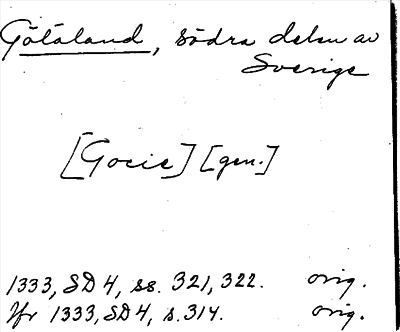 Götaland, södra delen av
Sverige
[Gocie] [gen.]
1333, SD 4, ss. 321, 322. orig.
Jfr 1333, SD 4, s. 314. orig.